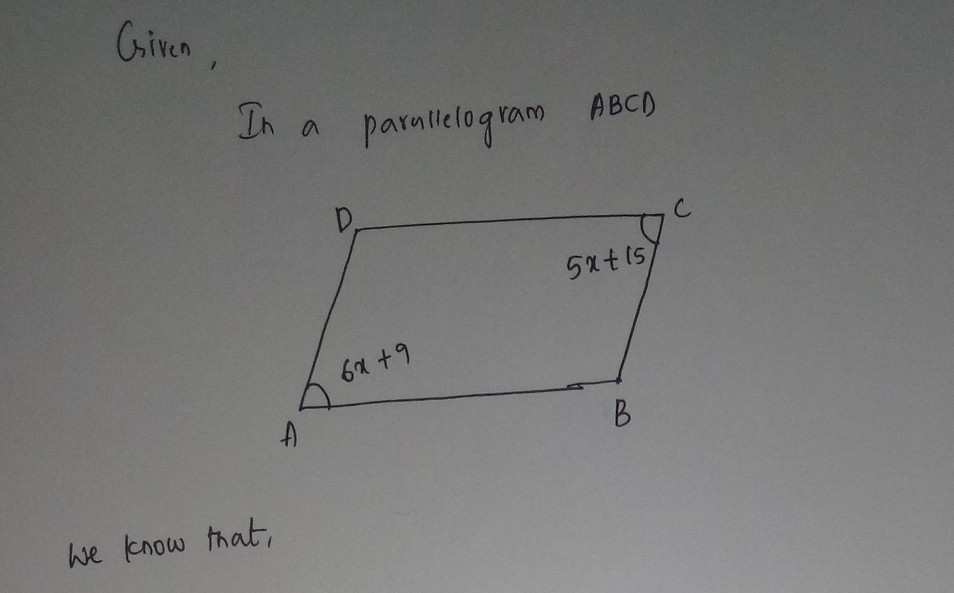 Given,
In a parallelogram ABCD
D
C
5x+15
6x+9
A
B
We know that,